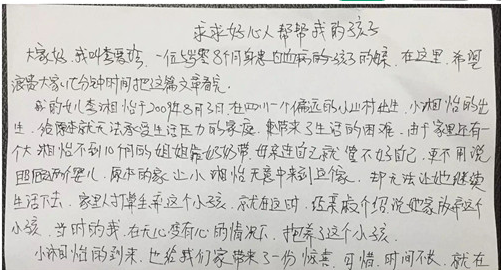 求求好心人帮帮我的孩子
大家好，我叫李, 一位仅8个月身患白血病的孩子的母亲，在这里，希望
浪费大家几分钟时间把这篇文章看完。
我的女儿李湘怡于2009年8月3日在四川一个偏远的小山村出生，小湘怡的出
生，给原本就无法承受生活压力的家庭，带来了生活的困难，由于家里还有一
个大湘怡不到10个月的姐姐需奶奶带，母亲连自己就管不好自己，更不用说
照顾两个婴儿，原本的家让小湘怡无意中来到这个家，却无法让她继续
生活下去，家里人打算丢弃这个小孩，就在这时，经某某介绍说她家放弃这个
小孩，当时的我，在无心变有心的情况下，抱养了这个小孩。
小湘怡的到来，也给我们家带来了一份惊喜，可惜，时间不长，就在